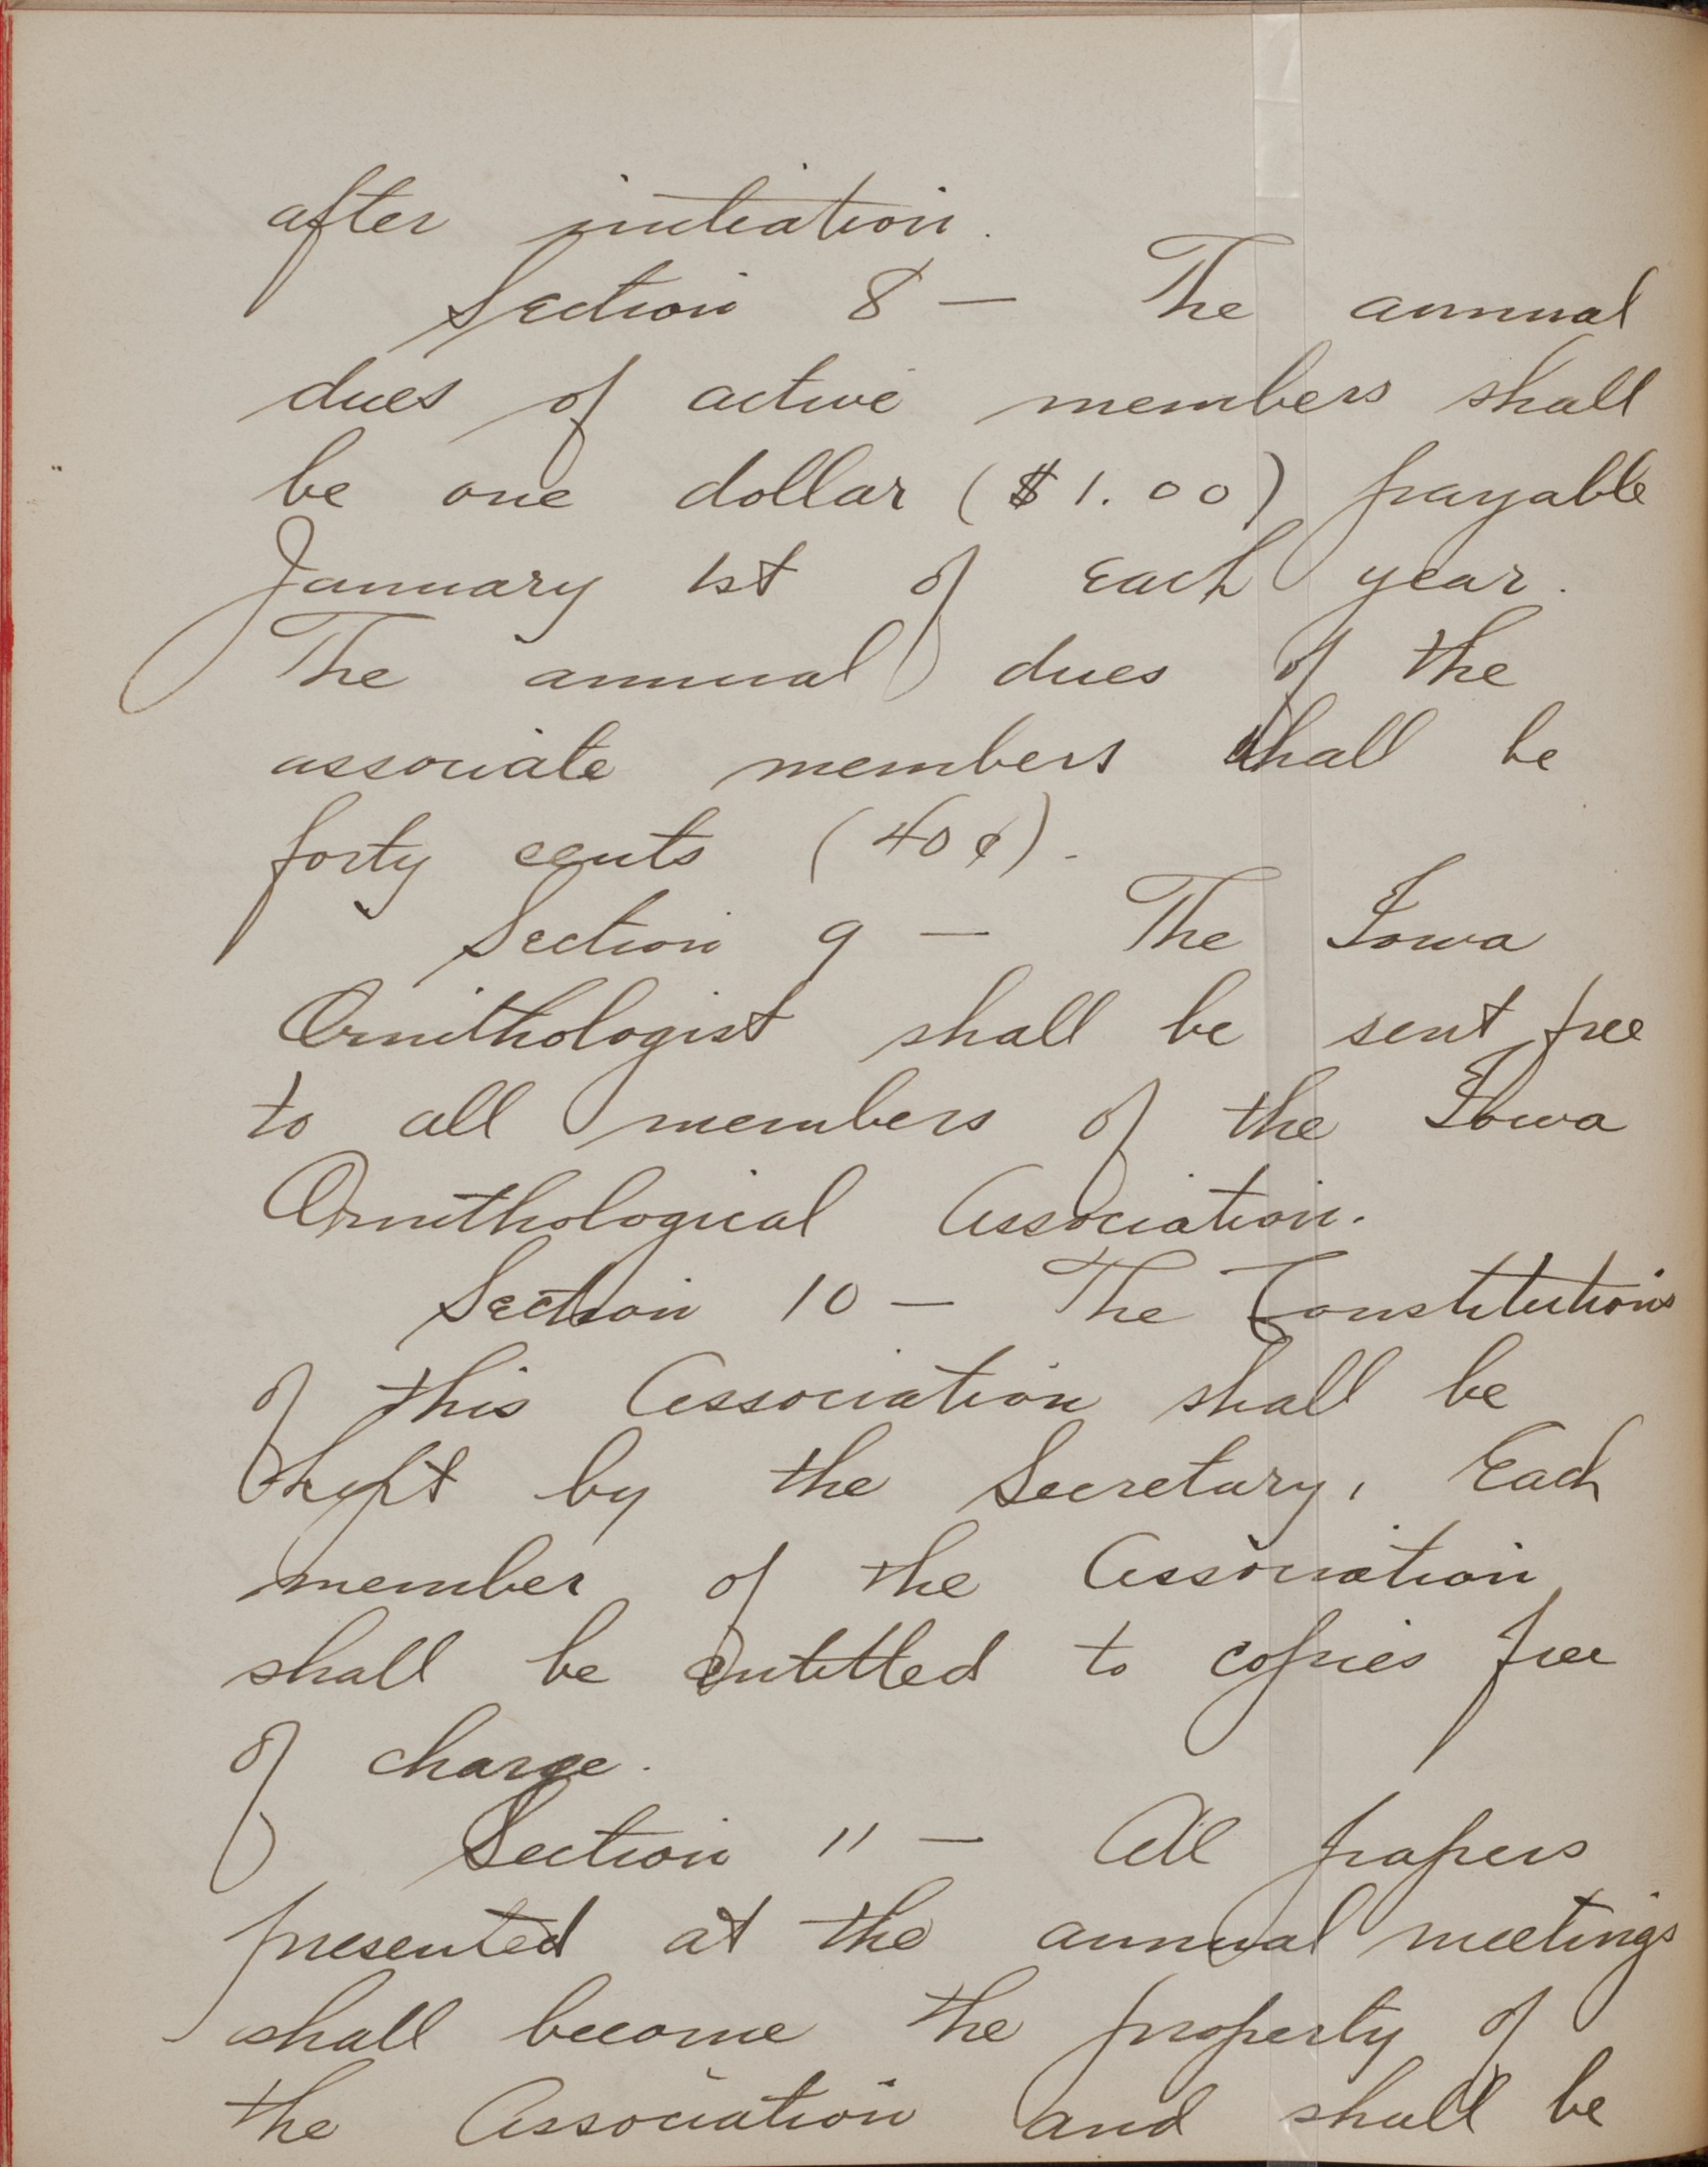 after initiation.
Section 8 — The annual
dues of active members shall
be one dollar ($1.00) payable
January 1st of each year.
The annual dues of the
associate members shall be
forty cents (40¢).
Section 9 — The Iowa
Ornithologist shall be sent free
to all members of the Iowa
Ornithological Association.
Section 10 — The Constitutions
of this Association shall be
kept by the Secretary, Each
member of the Association
shall be entitled to copies free
of charge.
Section 11 — All papers
presented at the annual meetings
shall become the property of
the Association and shall be